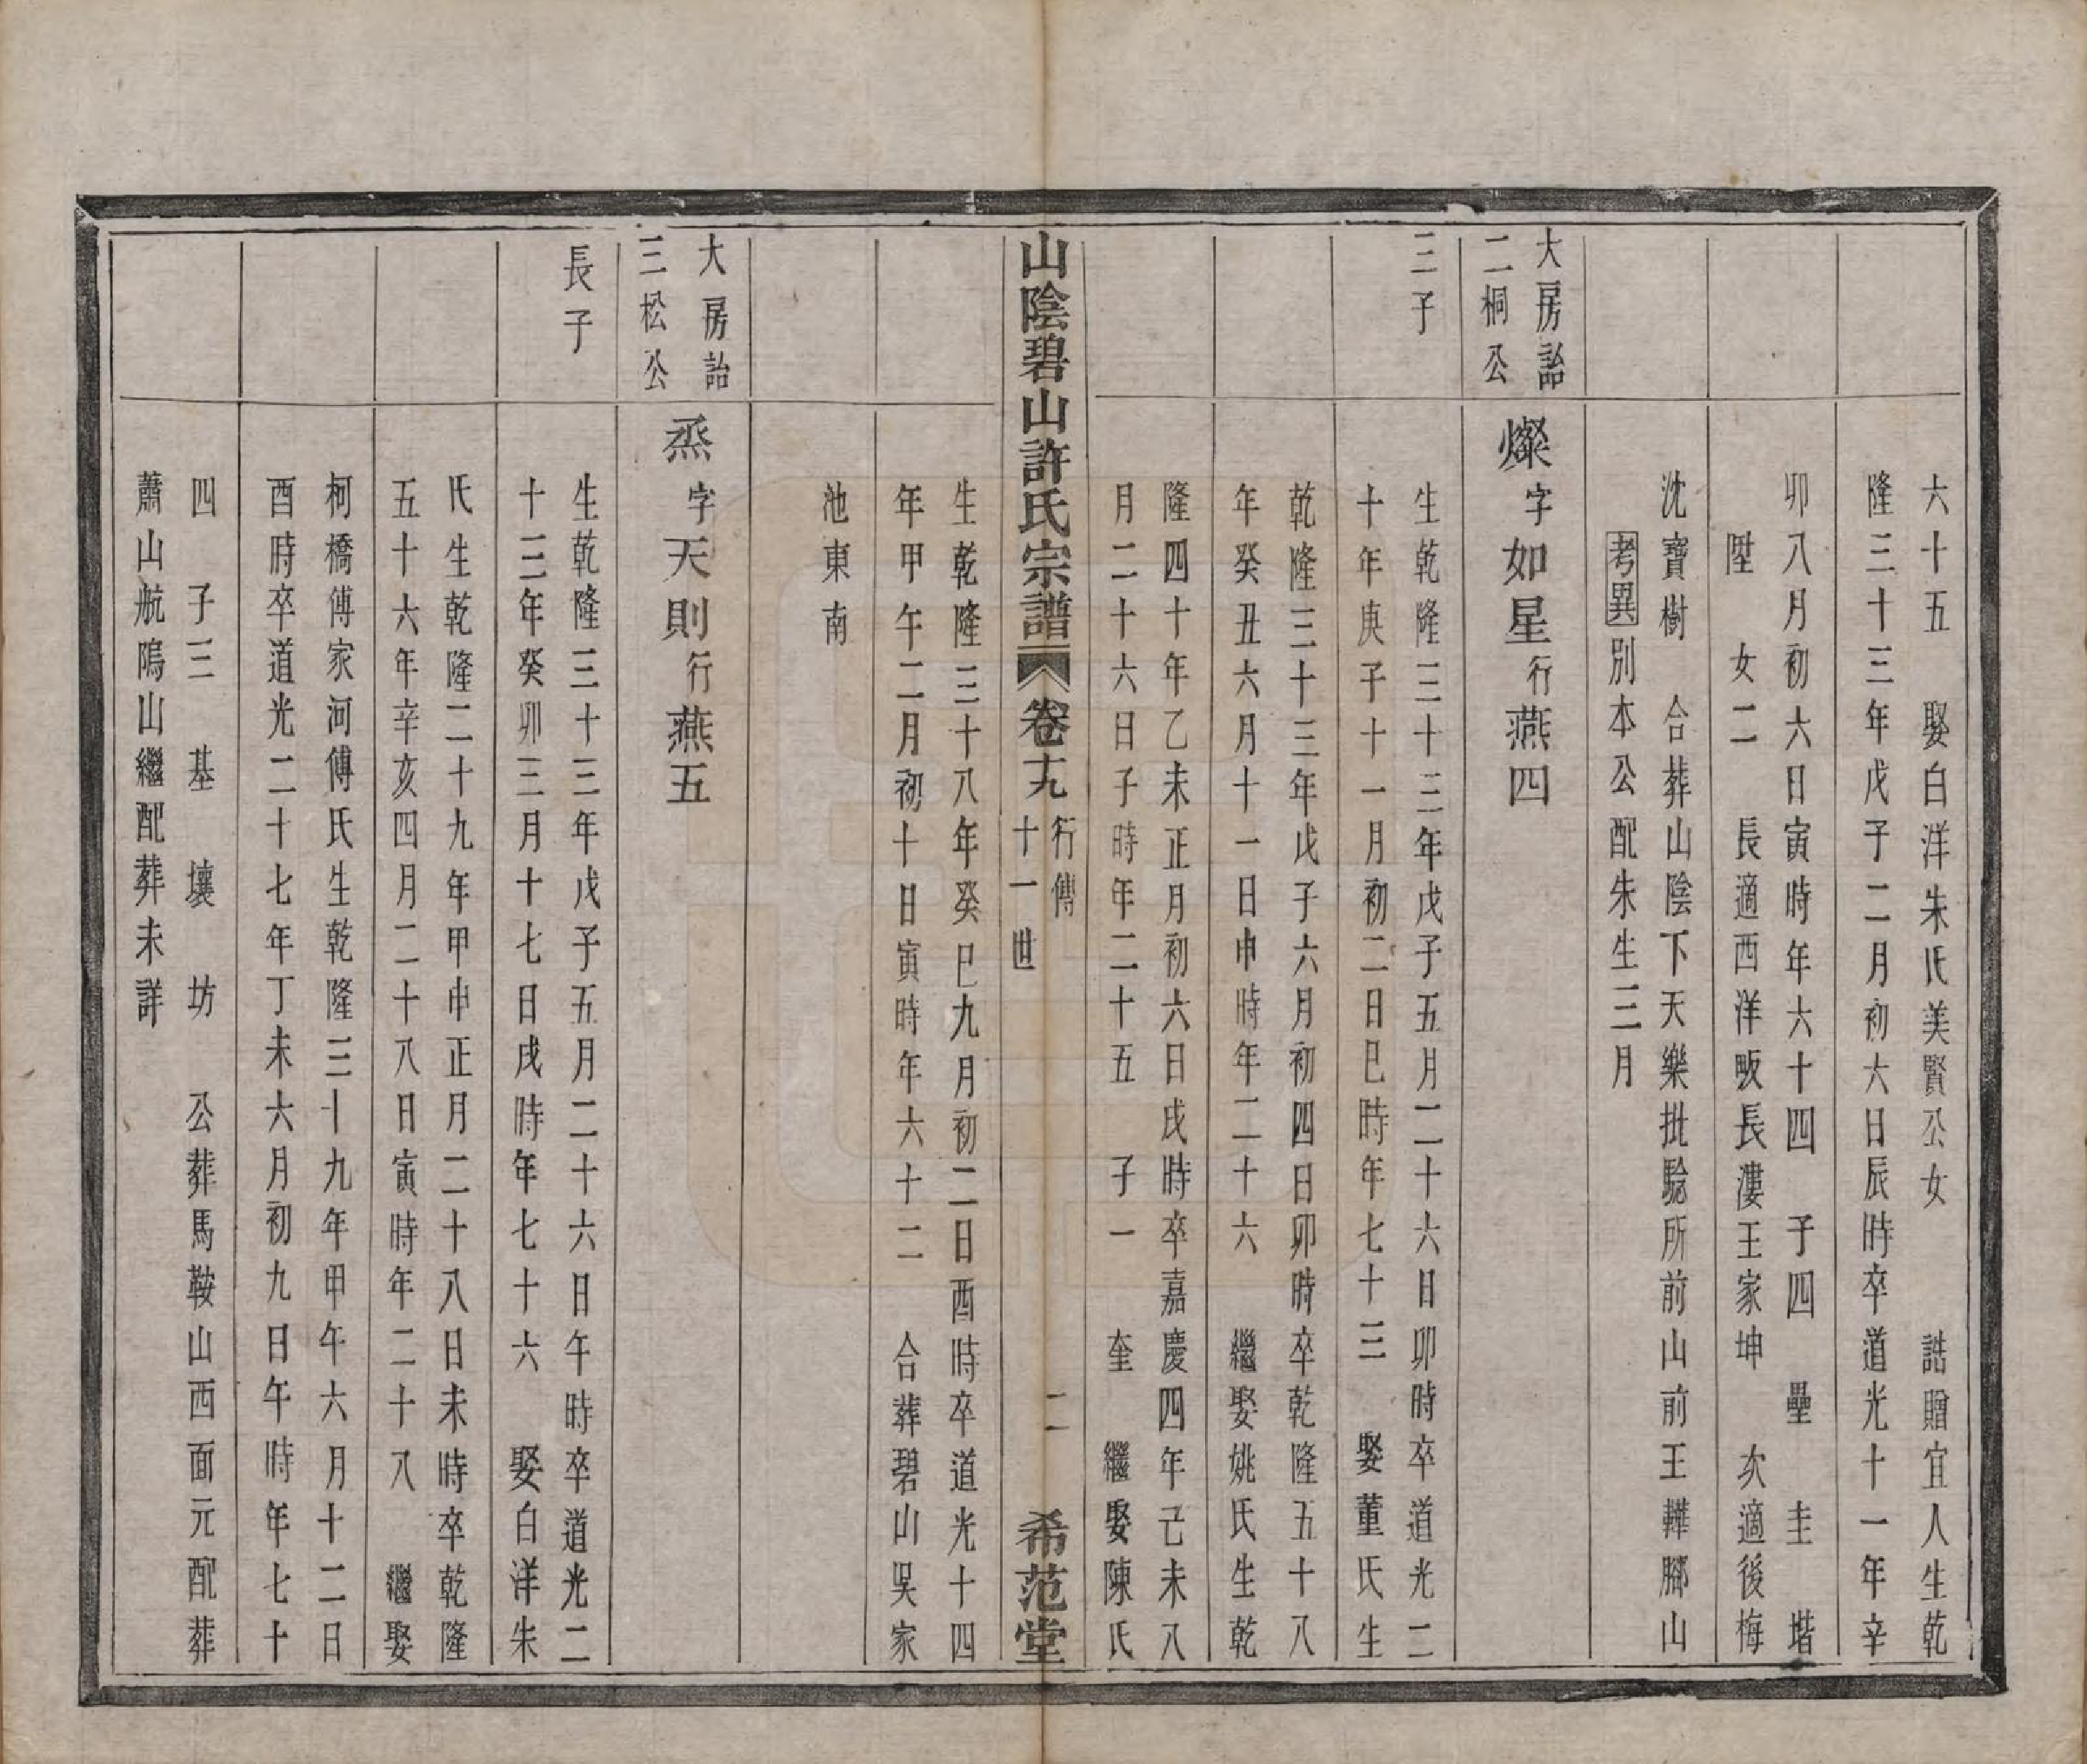 六十五 娶白洋朱氏美賢公女 誥贈宜人生乾
隆三十三年戊子二月初六日辰時卒道光十一年辛
卯八月初六日寅時年六十四 子四 壘 圭 堦
陞 女二 長適西洋畈長漊王家坤 次適後梅
沈寶樹 合葬山陰下天樂批驗所前山前王轉腳山
考異別本公配朱生三月
大房詒
二桐公
燦字如星行燕四
三子
生乾隆三十三年戊子五月二十六日卯時卒道光二
十年庚子十一月初二日巳時年七十三 娶董氏生
乾隆三十三年戊子六月初四日卯時卒乾隆五十八
年癸丑六月十一日申時年二十六 繼娶姚氏生乾
隆四十年乙未正月初六日戌時卒嘉慶四年己未八
月二十六日子時年二十五 子一 奎 繼娶陳氏
山陰碧山許氏宗譜 卷十九 行傳 十一世 二 希范堂
生乾隆三十八年癸巳九月初二日酉時卒道光十四
年甲午二月初十日寅時年六十二 合葬碧山吳家
池東南
大房詒
三松公
烝字天則行燕五
長子
生乾隆三十三年戊子五月二十六日午時卒道光二
十三年癸卯三月十七日戌時年七十六 娶白洋朱
氏生乾隆二十九年甲申正月二十八日未時卒乾隆
五十六年辛亥四月二十八日寅時年二十八 繼娶
柯橋傅家河傅氏生乾隆三十九年甲午六月十二日
酉時卒道光二十七年丁未六月初九日午時年七十
四 子三 基 壤 坊 公葬馬鞍山西面元配葬
蕭山航塢山繼配葬未詳